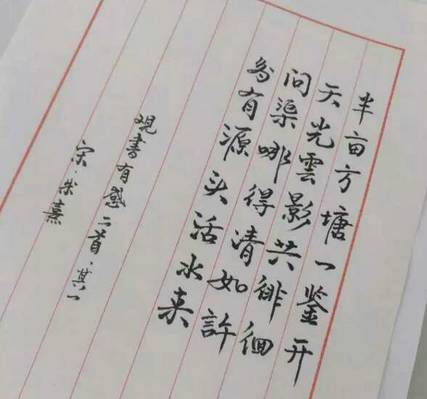 半亩方塘一鉴开
天光雲影共徘徊
问渠哪得清如許
为有源头活水来
观書有感二首·其一
宋·朱熹